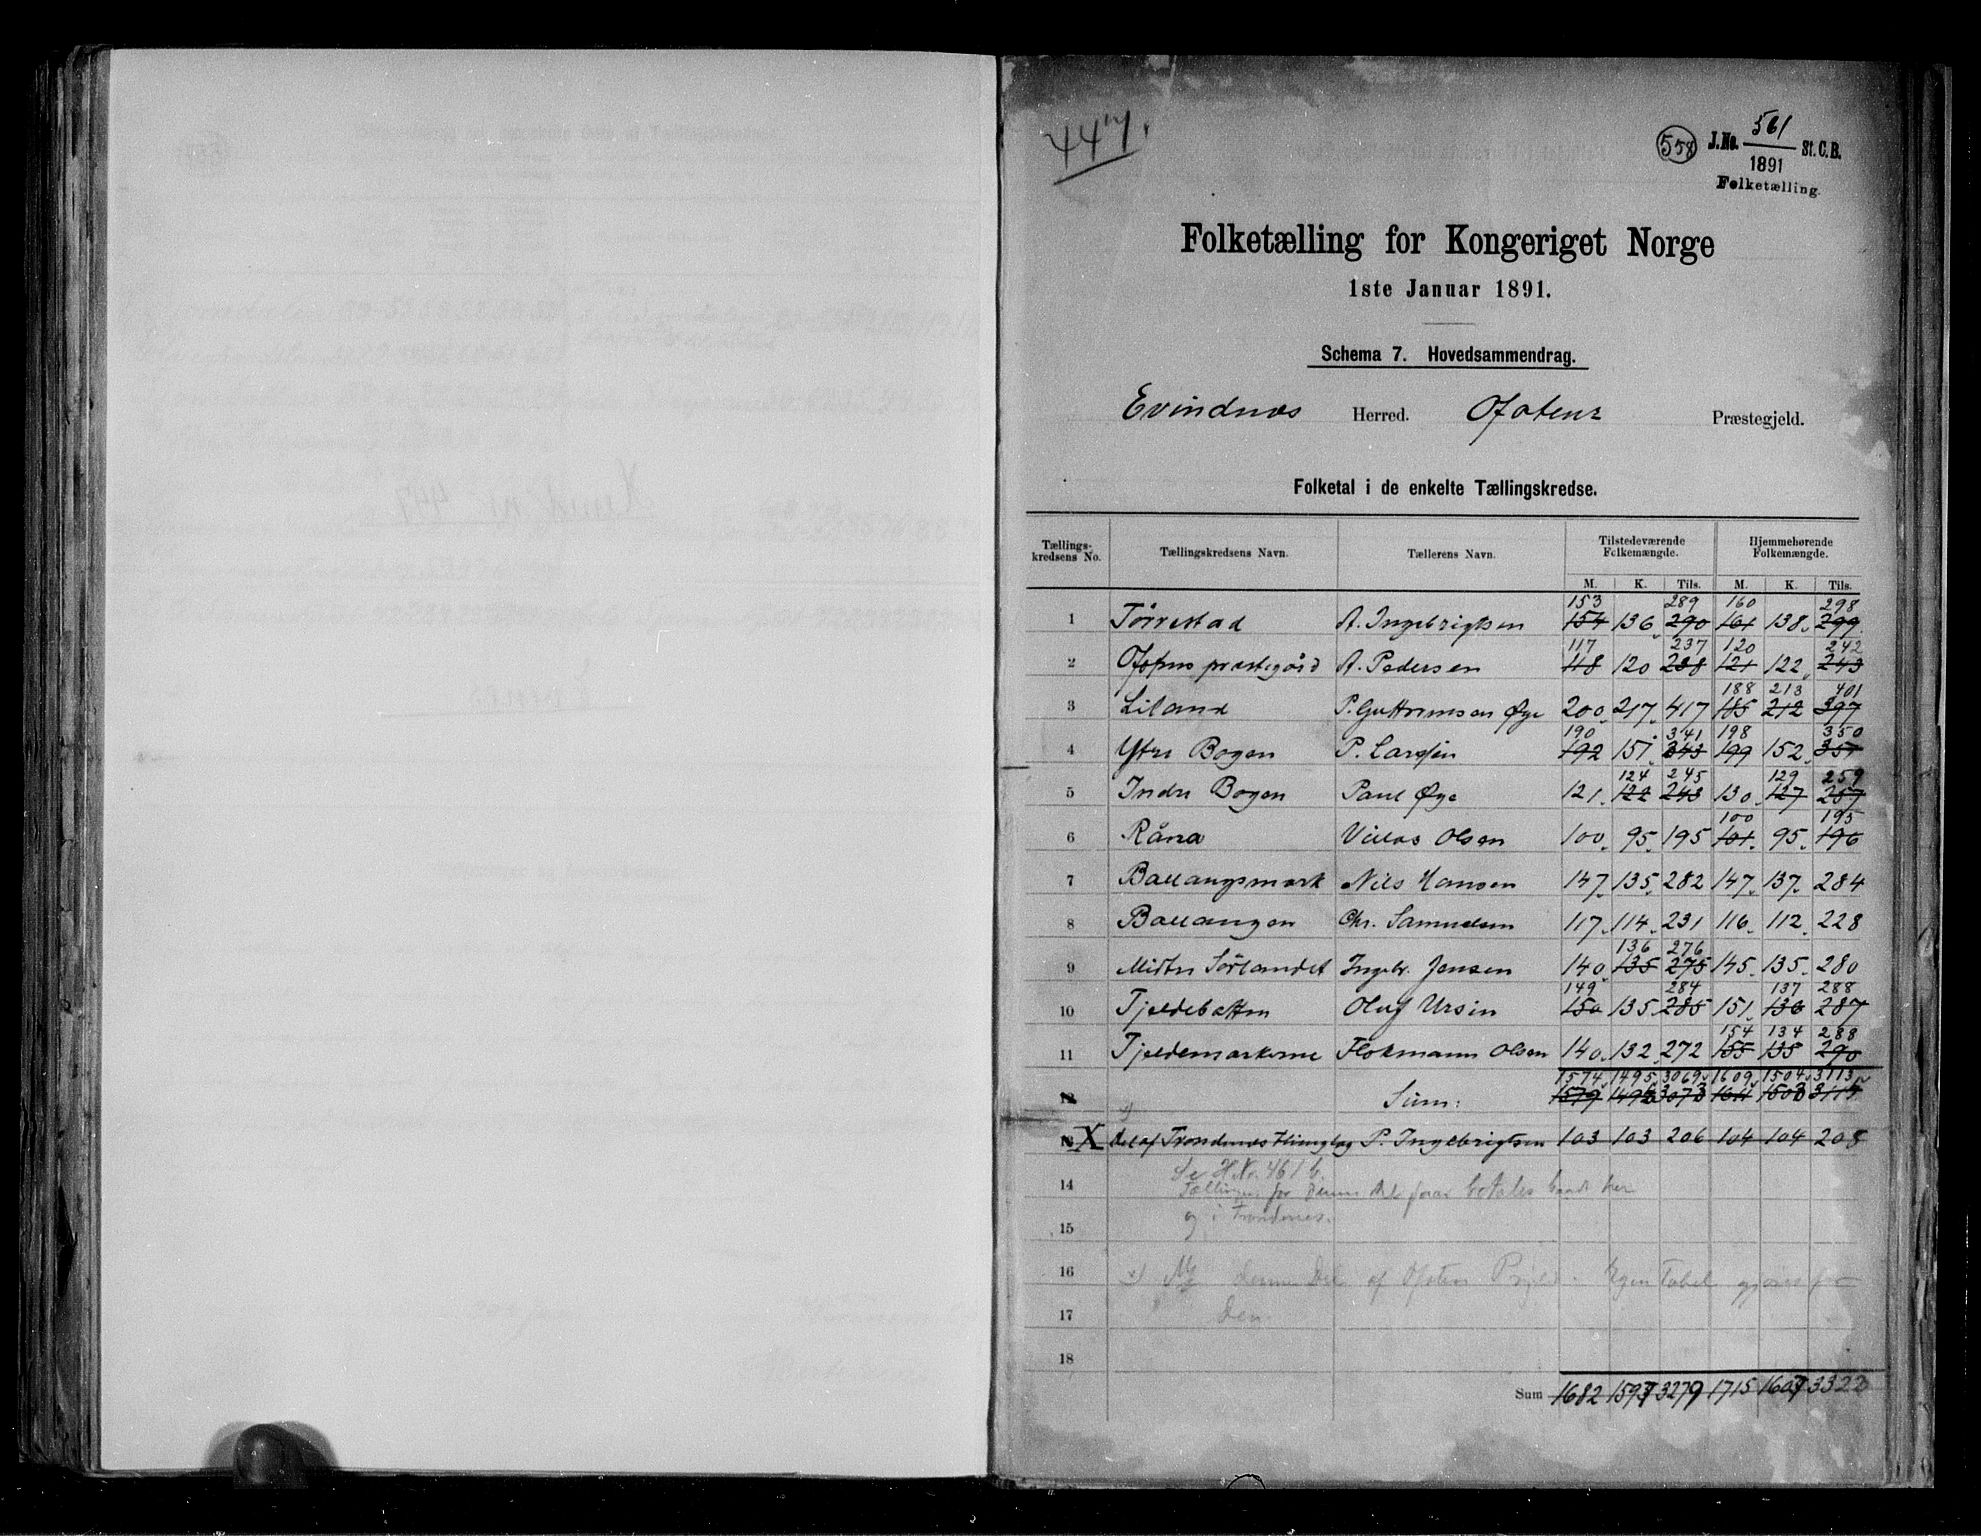 447.
558 J.No. 561 / 1891 St. C. B.
Folketælling.
Folketælling for Kongeriget Norge
1ste Januar 1891.
Schema 7. Hovedsammendrag.
Evindnæs Herred. Ofotens Præstegjeld.
Folketal i de enkelte Tællingskredse.
Tællingskredsens No. Tællingskredsens Navn. Tællerens Navn. Tilstedeværende Folkemængde. Hjemmehørende Folkemængde.
M. K. Tils. M. K. Tils.
153 289 160 298
1 Tørrestad A. Ingebrigtsen 154 136 290 161 138 299
117 237 120 242
2 Ofotens præstegård A. Pedersen 118 120 238 121 122 243
188 213 401
3 Liland P. Guttormsen Øye 200 217 417 185 212 397
190 341 198 350
4 Ytre Bogen P. Larssen 192 151 343 199 152 351
124 245 129 259
5 Indre Bogen Paul Øye 121 122 243 130 127 257
100 195
6 Råna Villas Olsen 100 95 195 101 95 196
7 Ballangsmark Nils Hansen 147 135 282 147 137 284
8 Ballangen Chr. Samuelsen 117 114 231 116 112 228
136 276
9 Midtre Sørlandet Ingebr. Jensen 140 135 275 145 135 280
149 284 137 288
10 Tjeldebotten Oluf Ursin 150 135 285 151 136 287
154 134 288
11 Tjeldemarkerne Flokmann Olsen 140 132 272 155 135 290
1574 1495 3069 1609 1504 3113
12 Sum: 1579 3073 1611 1503
X del af Trondenæs Thinglag P. Ingebrigtsen 103 103 206 104 104 208
Se H.No. 461 b.
14 Tællingen for denne Del faar betales baade her
15 og i Trondenæs.
16 x) denne Del af Ofoten Prgjld. Egen Tabel gjøres for
17 den
18
Sum 1682 3279 1715